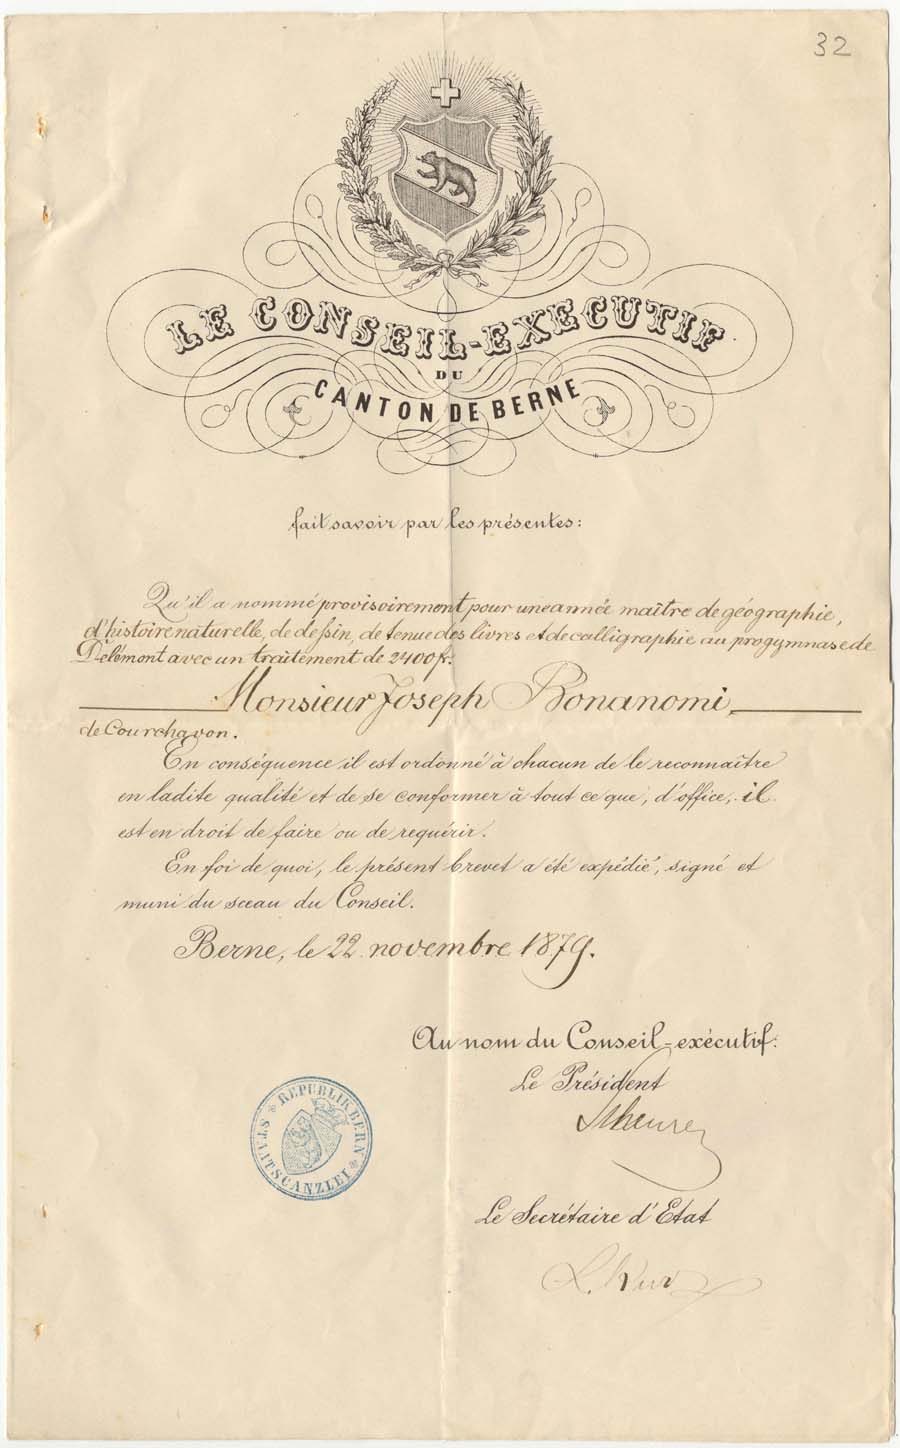 32
LE CONSEIL-EXECUTIF
DU
CANTON DE BERNE
fait savoir par les présentes:
Qu'il a nommé provisoirement pour une année maître de géographie,
d'histoire naturelle, de dessin, de tenue des livres et de calligraphie au progymnase de
Delémont avec un traitement de 2400 fr.
Monsieur Joseph Bonanomi,
de Courchavon.
En conséquence il est ordonné à chacun de le reconnaître
en ladite qualité et de se conformer à tout ce que, d'office, il
est en droit de faire ou de requérir.
En foi de quoi, le présent brevet a été expédié, signé et
muni du sceau du Conseil.
Berne, le 22 novembre 1879.
Au nom du Conseil-exécutif:
Le Président
REPUBLIK BERN
STAATSCANZLEI
Le Secrétaire d'Etat